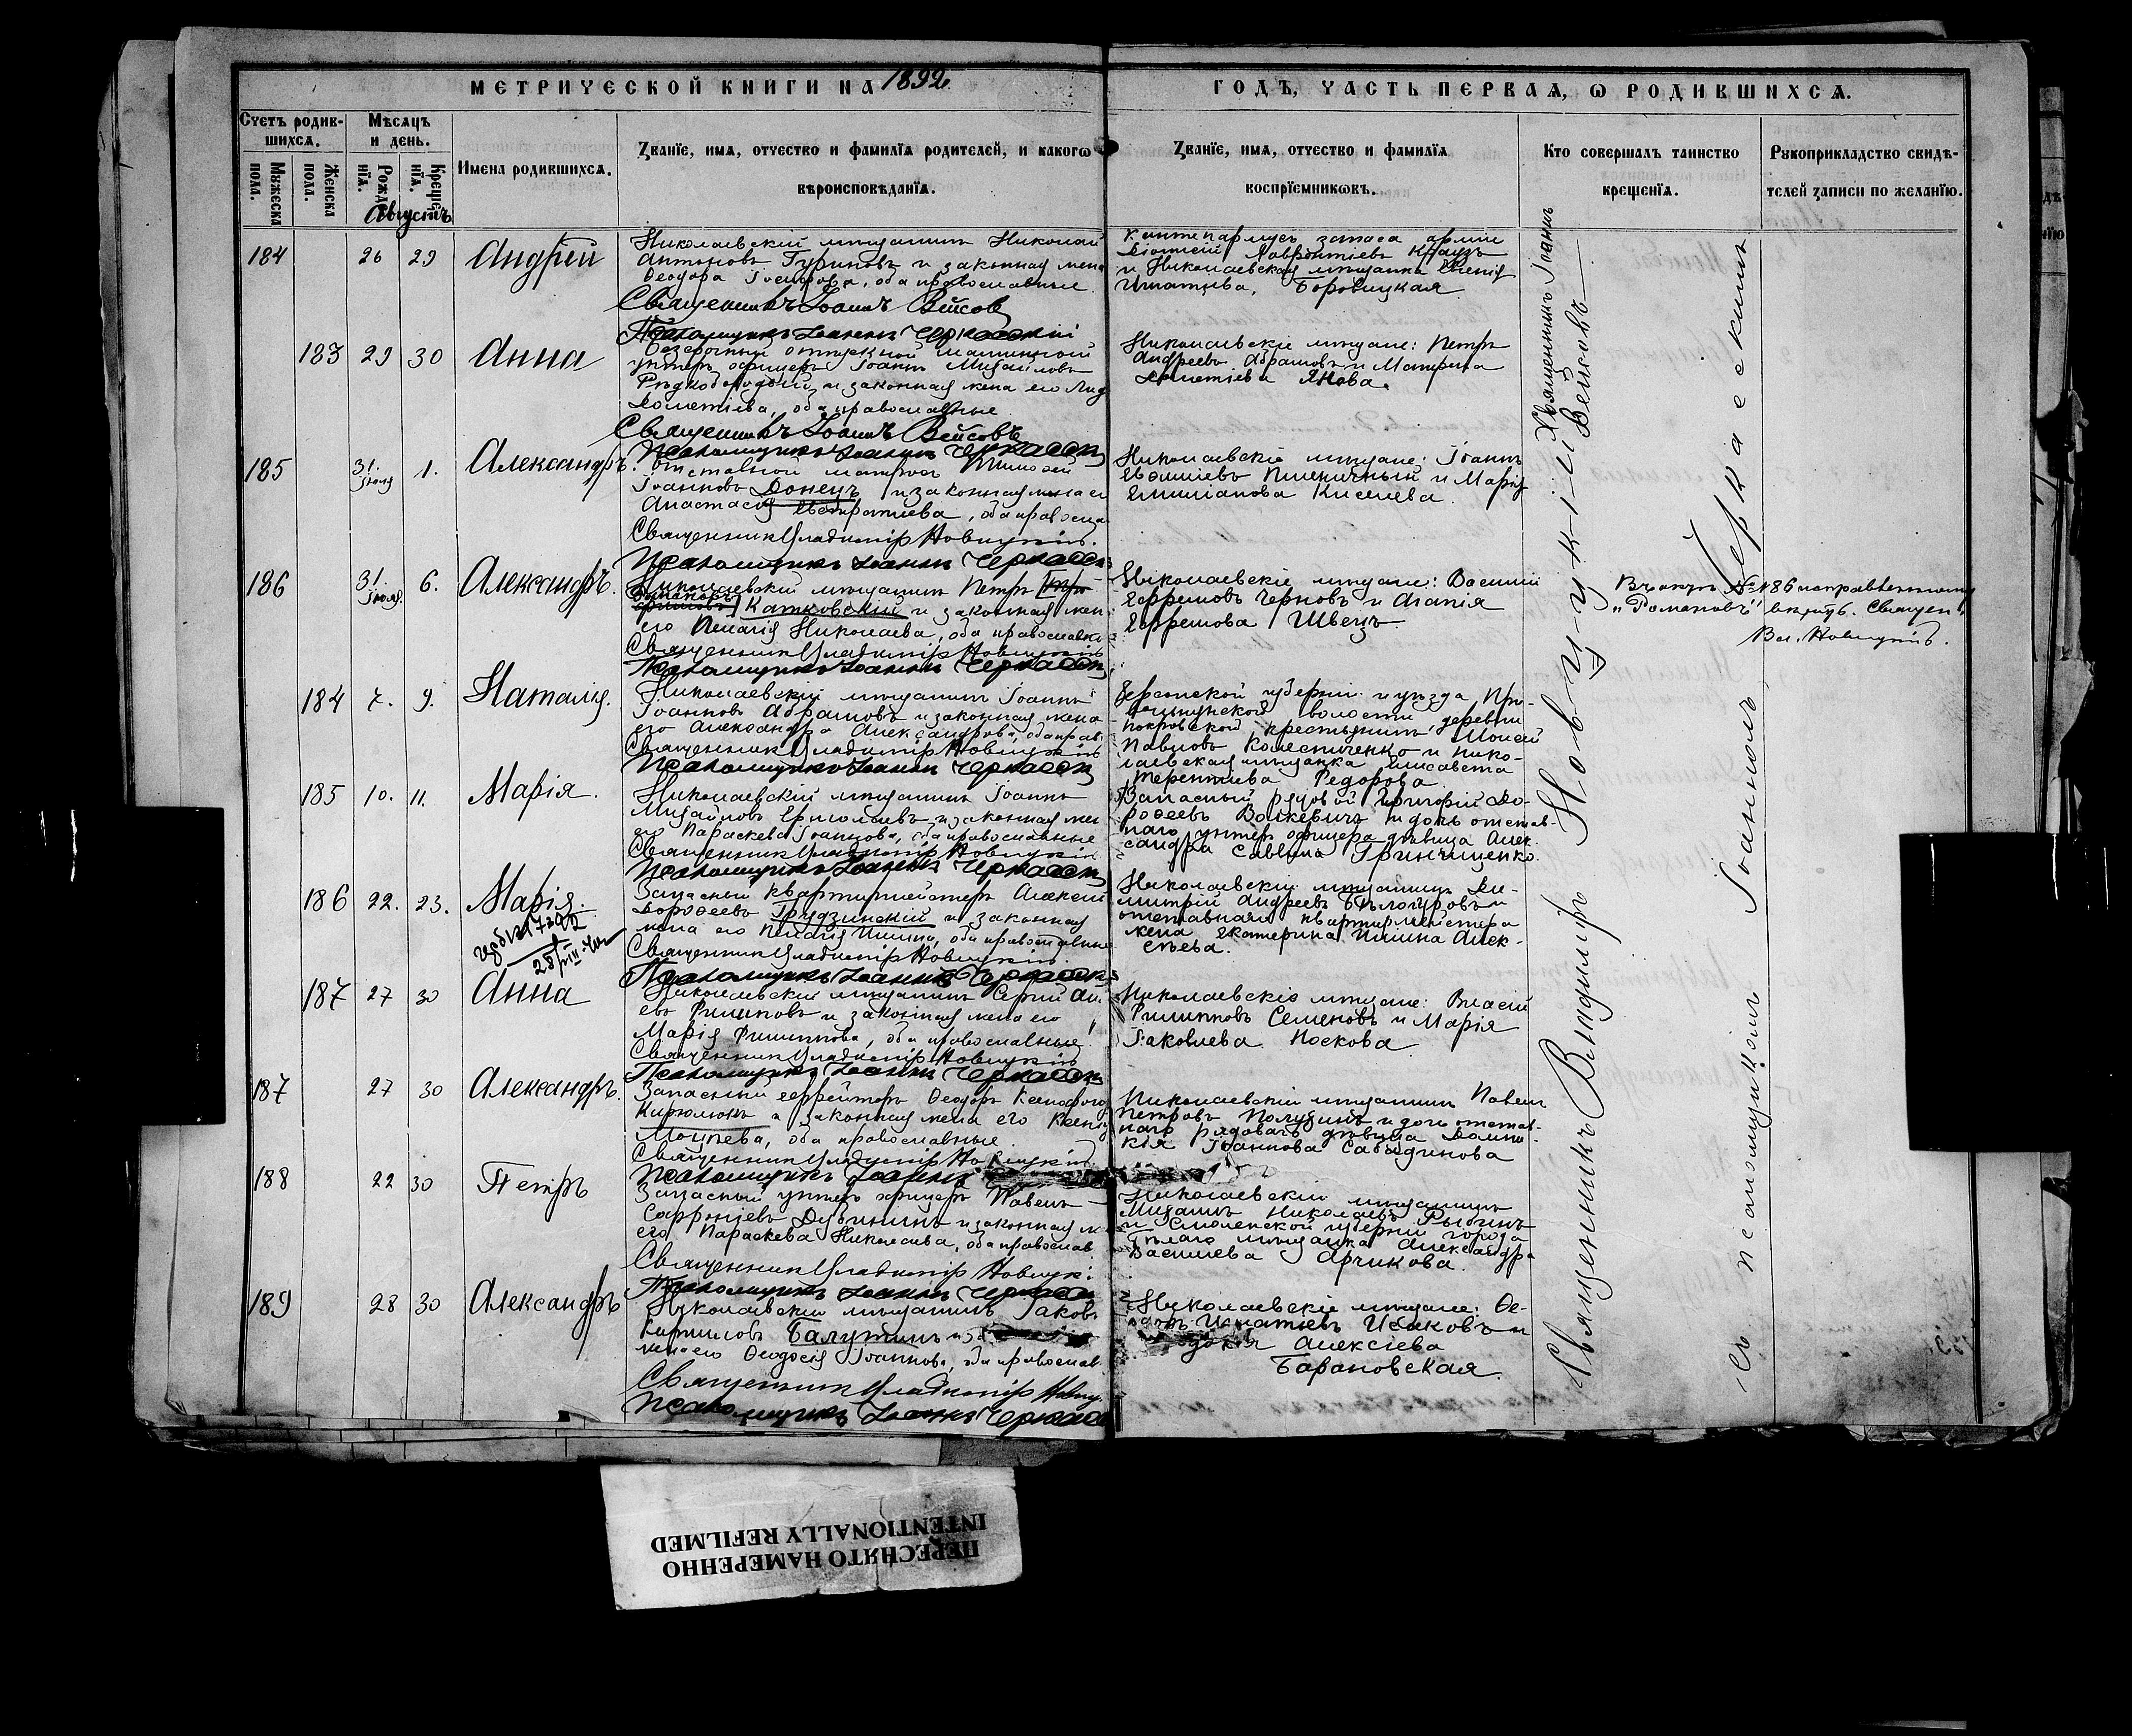 МЕТРИЧЕСКОЙ КНИГИ НА 1892
ГОДЪ, ЧАСТЬ ПЕРВАЯ, Ѡ РОДИВШИХСѦ.
Счетъ родив-
шихсѧ.
Мѣсѧцъ
и день.
Мужеска пола.
Женска пола.
Рожденїѧ.
Крещенїѧ.
Имена родившихсѧ.
Ꙁванїе, имѧ, отчество и фамилїѧ родителей, и какогѡ
вѣроисповѣданїѧ.
Ꙁванїе, имѧ, отчество и фамилїѧ
воспрїемниковъ.
Кто совершалъ таинство
крещенїѧ.
Рукоприкладство свидѣ-
телей записи по желанїю.
Августъ
184 26 29 Андрей
Николаевскій мѣщанинъ Николай
Антоновъ Гуриновъ и законная жена
Ѳеодора, оба православные
Священникъ Іоаннъ Вейсовъ
Псаломщикъ Іоаннъ Черкасскій
запаса арміи
Лаврентіевъ
и Николаевская мѣщанка
Игнатьева, Боровицкая
183 29 30 Анна
Безсрочный отпускной
унтеръ офицеръ Іоаннъ Михайловъ
и законная жена его
Дометіева, оба православные
Священникъ Іоаннъ Вейсовъ
Псаломщикъ Іоаннъ Черкасск
Николаевскіе мѣщане: Петръ
Андреевъ Абрамовъ и Матрена
Дометіева Янова.
185 31. Іюля 1. Александръ.
Отставной матросъ Тимофей
Іоанновъ Донецъ и законная жена его
Анастасія Евстратіева, оба правосла
Священникъ Владиміръ Новицкій.
Псаломщикъ Іоаннъ Черкасск
Николаевскіе мѣщане: Іоаннъ
Пшеничный и Марія
Емиліанова Киселева.
186 31. Іюля. 6. Александръ.
Николаевскій мѣщанинъ Петръ
Катковскій и законная жен
его Пелагія Николаева, оба православн
Священникъ Владиміръ Новицкій
Псаломщикъ Іоаннъ Черкасск
Николаевскіе мѣщане: Василій
Ефремовъ Черновъ и Агапія
Ефремова Швецъ.
Въ актѣ № 186 исправленному
"Романовъ" вѣрить. Священ.
Вл. Новицкій.
184 7. 9. Наталія.
Николаевскій мѣщанинъ Іоаннъ
Іоанновъ Абрамовъ и законная жена
его Александра Александрова, оба прав.
Священникъ Владиміръ Новицкій
Псаломщикъ Іоаннъ Черкасск
Херсонской губерніи и уѣзда При-
волости, деревни
Покровской крестьянинъ Моисей
Павловъ Колесниченко и Нико-
лаевская мѣщанка Елисавета
Терентіева Федорова.
185 10. 11. Марія.
Николаевскій мѣщанинъ Іоаннъ
Михайловъ и законная жен
его Параскева Іоаннова, оба православные
Священникъ Владиміръ Новицкій
Псаломщикъ Іоаннъ Черкасск
Запасный рядовой Григорій До-
роѳеевъ Волкевичъ и дочь отстав-
наго унтеръ офицера дѣвица Алек-
сандра Саввина Гринчищенко.
186 22. 23. Марія.
Запасный квартирмейстеръ Алексій
Дороѳеевъ Грудзинскій и законная
жена его Пелагія Ильина, оба православные
Священникъ Владиміръ Новицкій.
Псаломщикъ Іоаннъ Черкасск
Николаевскій мѣщанинъ Ди-
митрій Андреевъ Бѣлогуровъ и
отставнаго квартирмейстера
жена Екатерина Ильина Алек-
сѣева.
187 27 30 Анна
Николаевскій мѣщанинъ Сергій
евъ Филиповъ и законная жена его
Марія Филиппова, оба православные.
Священникъ Владиміръ Новицкій
Псаломщикъ Іоаннъ Черкасск
Николаевскіе мѣщане: Власій
Филипповъ Семеновъ и Марія
Іаковлева Носкова
187 27 30 Александръ.
Запасный ефрейторъ Ѳеодоръ Ксенофонт
Кирюлюкъ и законная жена его Ксенія
Моисеева, оба православные.
Священникъ Владиміръ Новицкій
Псаломщикъ Іоаннъ
Николаевскій мѣщанинъ Павелъ
Петровъ Полухинъ и дочь отстав-
наго рядоваго дѣвица Домни-
кія Іоаннова Сабадинова
188 22 30 Петръ
Запасный унтеръ офицеръ Павелъ
Софроніевъ Дубининъ и законная ж
его Параскева Николаева, оба православ
Священникъ Владиміръ Новицкі
Псаломщикъ Іоаннъ Черкасск
Николаевскій мѣщанинъ
Михаилъ Николаевъ Рыбинъ
и Смоленской губерніи города
Бѣлаго мѣщанка Александра
Василіева Арчикова.
189 28 30 Александръ
Николаевскій мѣщанинъ Іаковъ
Кирилловъ Балутинъ и за
жена его Ѳеодосія Іоаннова, оба православ
Священникъ Владиміръ Новиц
Псаломщикъ Іоаннъ Черкасс
Николаевскіе мѣщане: Ѳе-
одоръ Игнатіевъ Исаковъ и
Алексіева
Барановская.
Священникъ Іоаннъ
Вейсовъ
Священникъ Владиміръ Новицкій
съ псаломщикомъ Іоанномъ Черкасскимъ
ПЕРЕСНЯТО НАМЕРЕННО
INTENTIONALLY REFILMED